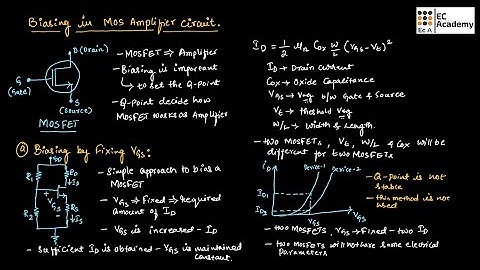 Biasing in MOS Amplifier Circuit.
EC
Academy
EC A
D (Drain)
G
(Gate)
S
(Source)
MOSFET
- MOSFET ⇒ Amplifier
- Biasing is important
→ to set the Q-Point
- Q-Point decide how
MOSFET works as Amplifier
ID = 1/2 μn Cox W/L (VGS - Vt)²
ID → Drain current
Cox → Oxide Capacitance
VGS → Vtg b/w Gate & Source
Vt → threshold Vtg
W/L → Width & Length.
- two MOSFETs, Vt, W/L & Cox will be
different for two MOSFETs
ⓐ Biasing by Fixing VGS:
VDD
R1
RD
↓ID
VGS
R2
RS
↓IS
- Simple approach to bias a
MOSFET
- VGS ⇒ Fixed ⇒ Required
amount of ID
- VGS is increased - ID
- Sufficient ID is obtained - VGS is maintained
constant.
iD
Device-1
Device-2
ID1
ID2
VGS
VGS
- Q-Point is not
stable
- this method is not
used
- two MOSFETs, VGS → Fixed - two ID
- two MOSFETs will not have same electrical
Parameters